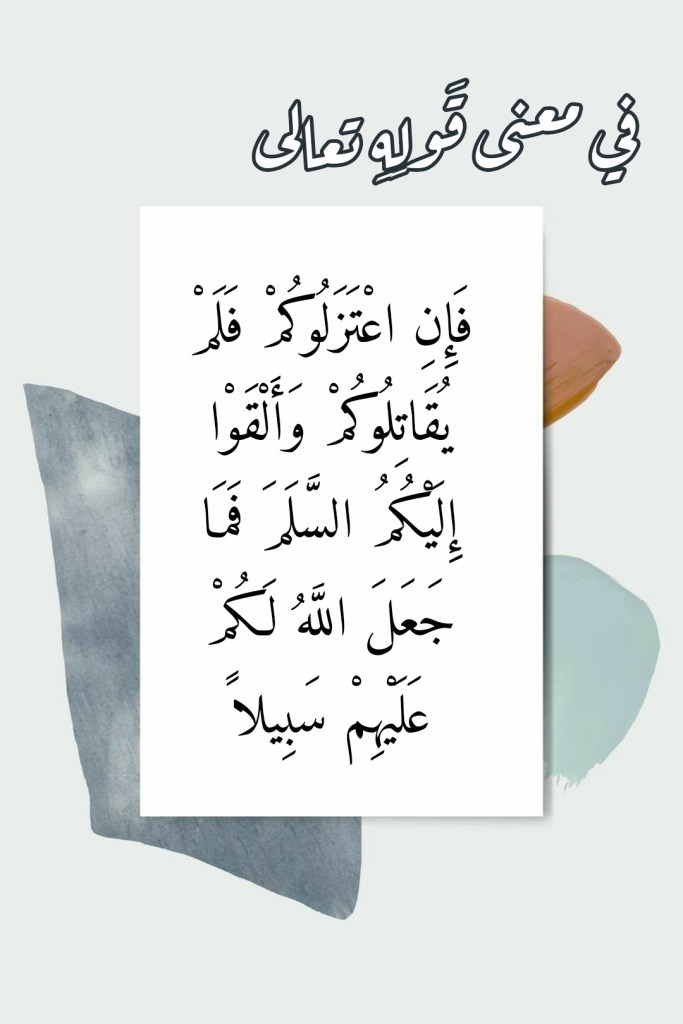 في معنى قًولِهِ تعالى
فَإِنِ اعْتَزَلُوكُمْ فَلَمْ
يُقَاتِلُوكُمْ وَأَلْقَوْا
إِلَيْكُمُ السَّلَمَ فَمَا
جَعَلَ اللَّهُ لَكُمْ
عَلَيْهِمْ سَبِيلاً